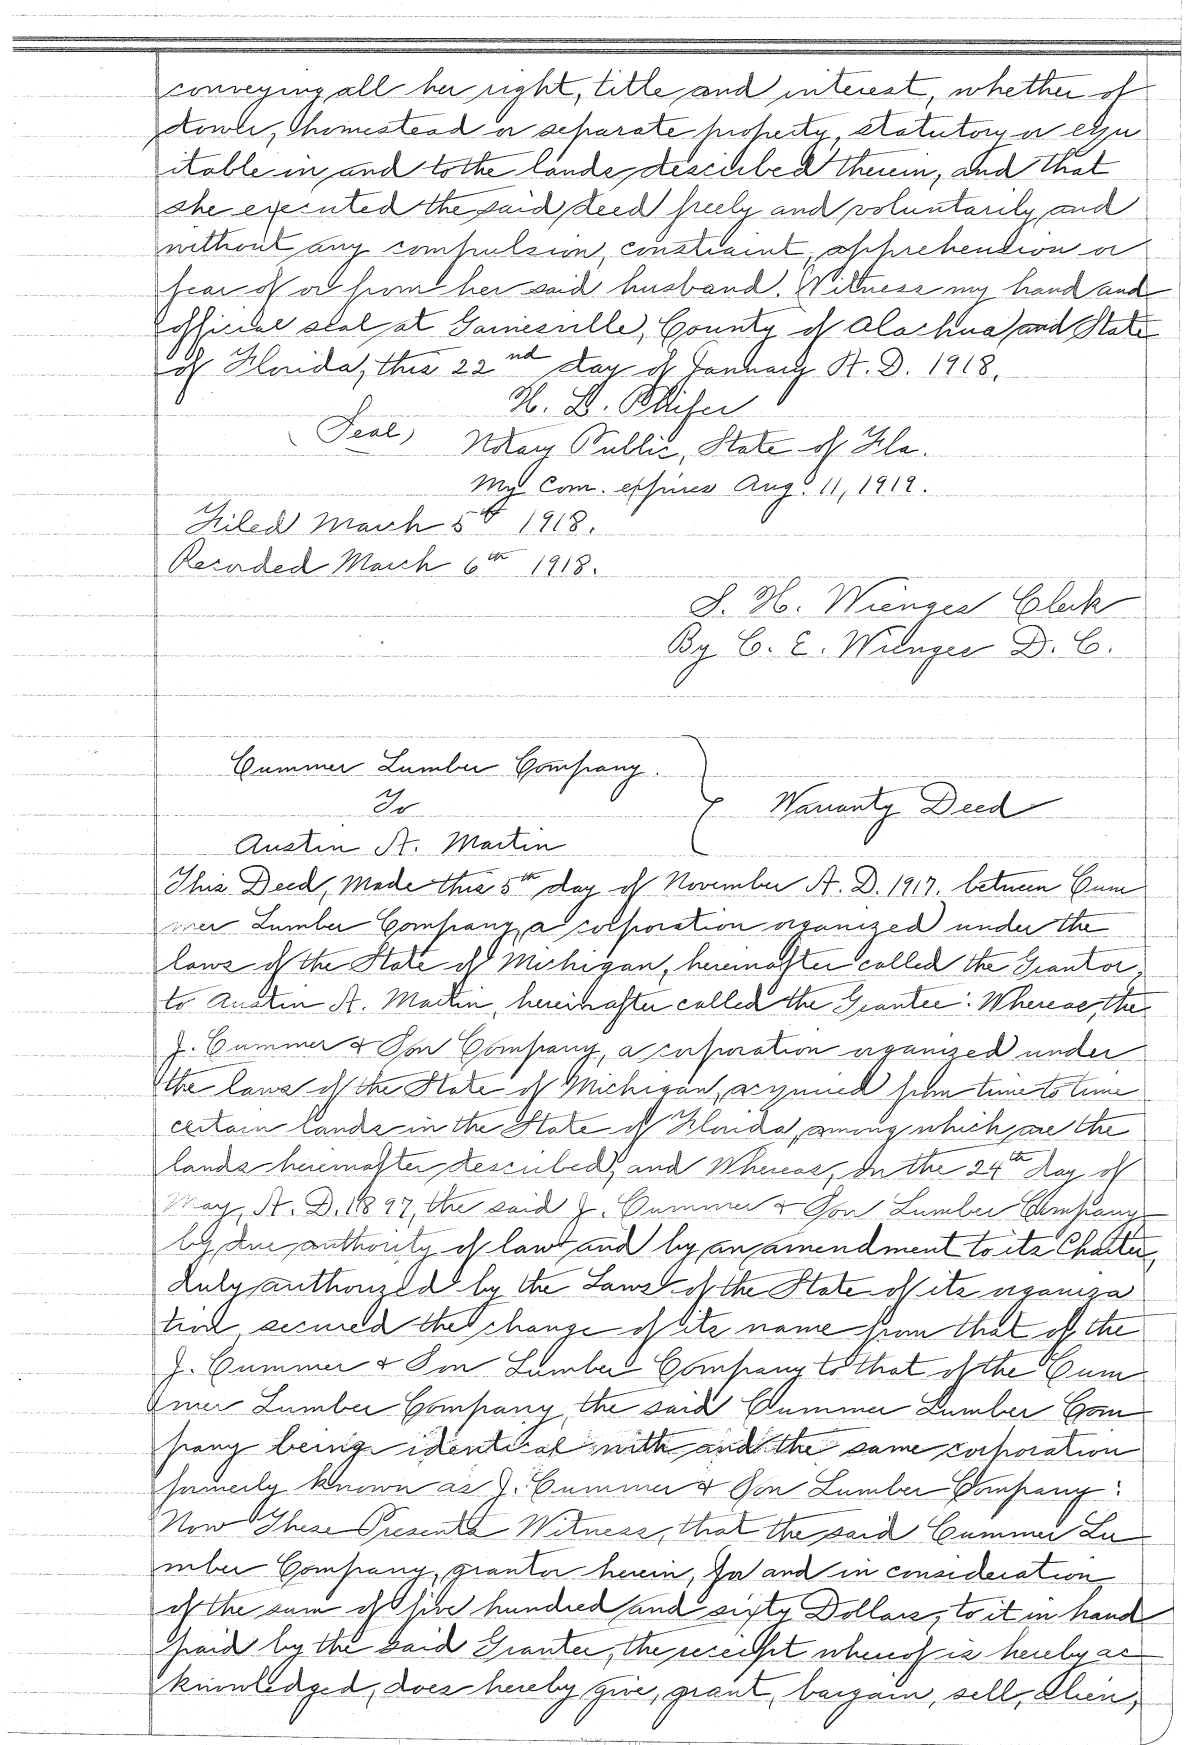 conveying all her right, title and interest, whether of
dower, homestead or separate property, statutory or equ
itable in and to the lands described therein, and that
she executed the said deed freely and voluntarily and
without any compulsion, constraint, apprehension or
fear of or from her said husband. Witness my hand and
official seal at Gainesville, County of Alachua and State
of Florida, this 22nd day of January A. D. 1918.
H. L. Phifer
(Seal) Notary Public, State of Fla.
My Com. expires Aug. 11, 1919.
Filed March 5th 1918.
Recorded March 6th 1918.
S. H. Wienges Clerk
By C. E. Wienges D. C.
Cummer Lumber Company.
To
Warranty Deed
Austin A. Martin
This Deed, Made this 5th day of November A. D. 1917. between Cum
mer Lumber Company, a corporation organized under the
laws of the State of Michigan, hereinafter called the Grantor,
to Austin A. Martin, hereinafter called the Grantee: Whereas, the
J. Cummer & Son Company, a corporation organized under
the laws of the State of Michigan, acquired from time to time
certain lands in the State of Florida, among which are the
lands hereinafter described, and Whereas, on the 24th day of
May, A. D. 1897, the said J. Cummer & Son Lumber Company
by due authority of law and by an amendment to its Charter,
duly authorized by the Laws of the State of its organiza
tion, secured the change of its name from that of the
J. Cummer & Son Lumber Company to that of the Cum
mer Lumber Company, the said Cummer Lumber Com
pany being identical with and the same corporation
formerly known as J. Cummer & Son Lumber Company:
Now These Presents Witness, that the said Cummer Lu
mber Company, grantor herein, for and in consideration
of the sum of five hundred and sixty Dollars, to it in hand
paid by the said Grantee, the receipt whereof is hereby ac
knowledged, does hereby give, grant, bargain, sell, alien,